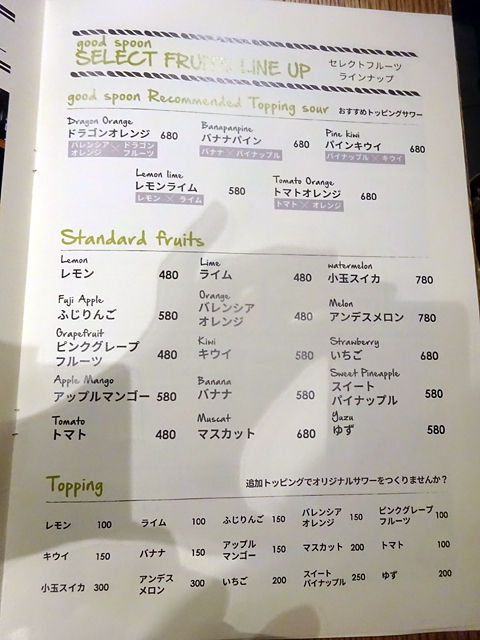 good spoon
SELECT FRUITS LINE UP
セレクトフルーツ
ラインナップ
good spoon Recommended Topping sour おすすめトッピングサワー
Dragon Orange
ドラゴンオレンジ 680
バレンシア × ドラゴン
オレンジ フルーツ
Bananpanpine
バナナパイン 680
バナナ × パイナップル
Pine kiwi
パインキウイ 680
パイナップル × キウイ
Lemon lime
レモンライム 580
レモン × ライム
Tomato Orange
トマトオレンジ 680
トマト × オレンジ
Standard fruits
Lemon
レモン 480
Lime
ライム 480
watermelon
小玉スイカ 780
Fuji Apple
ふじりんご 580
Orange
バレンシア
オレンジ 480
Melon
アンデスメロン 780
Grapefruit
ピンクグレープ
フルーツ 480
Kiwi
キウイ 580
Strawberry
いちご 680
Apple Mango
アップルマンゴー 580
Banana
バナナ 580
Sweet Pineapple
スイート
パイナップル 580
Tomato
トマト 480
Muscat
マスカット 680
Yuzu
ゆず 580
Topping
追加トッピングでオリジナルサワーをつくりませんか？
レモン 100
ライム 100
ふじりんご 150
バレンシア
オレンジ 150
ピンクグレープ
フルーツ 100
キウイ 150
バナナ 150
アップル
マンゴー 150
マスカット 200
トマト 100
小玉スイカ 300
アンデス
メロン 300
いちご 200
スイート
パイナップル 250
ゆず 200